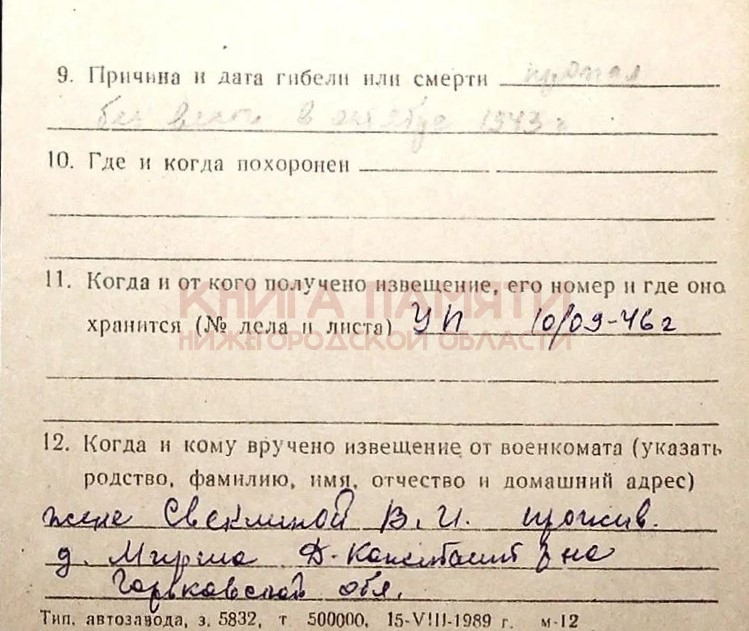 9. Причина и дата гибели или смерти пропал
без вести в октябре 1943 г
10. Где и когда похоронен
11. Когда и от кого получено извещение, его номер и где оно
КНИГА ПАМЯТИ
хранится (№ дела и листа) УП 10/09-46 г
НИЖЕГОРОДСКОЙ ОБЛАСТИ
12. Когда и кому вручено извещение от военкомата (указать
родство, фамилию, имя, отчество и домашний адрес)
жене Свеклиной В. И. прожив.
д. Мигрма Д-Констант р на
Горьковской обл.
Тип. автозавода, з. 5832, т 500000, 15-VIII-1989 г. м-12